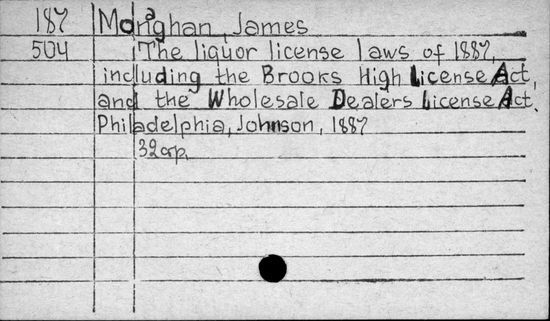 187 Monaghan, James
504 The liquor license laws of 1887,
including the Brooks High License Act,
and the Wholesale Dealers License Act.
Philadelphia, Johnson, 1887